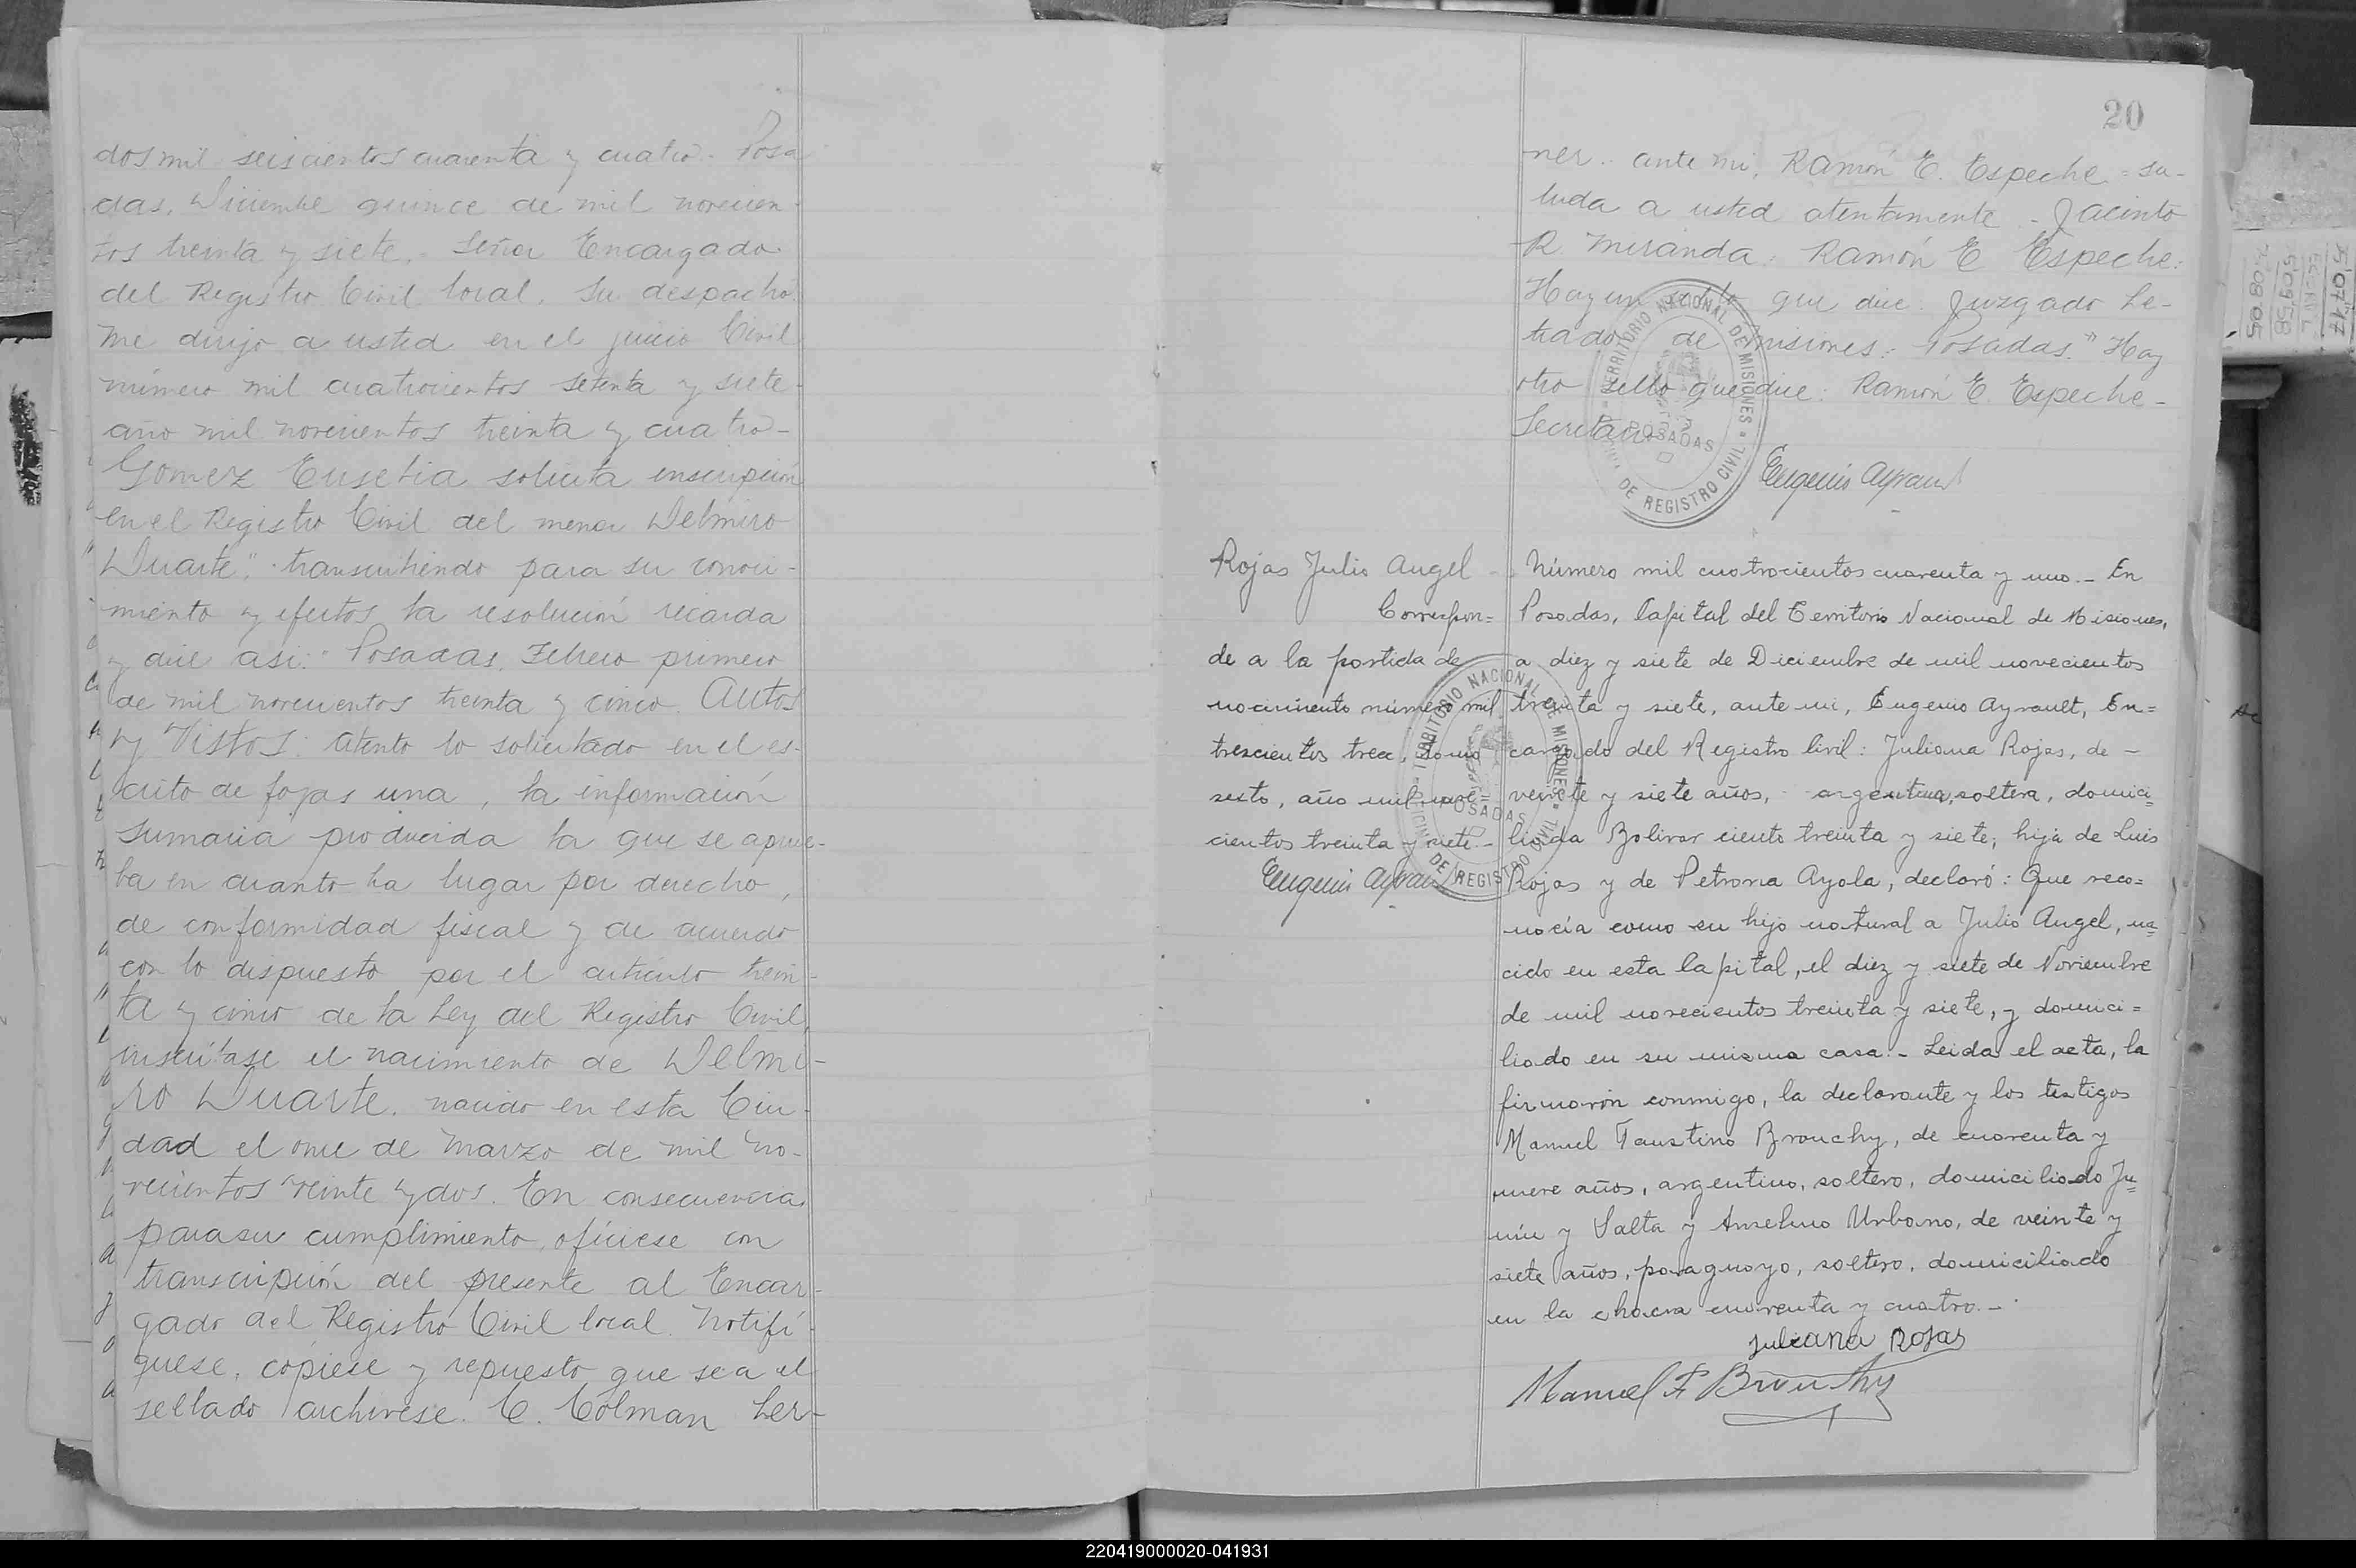 dos mil seiscientos cuarenta y cuatro. Posa
das, Diciembre quince de mil novecien-
tos treinta y siete.- Señor Encargado
del Registro Civil local. Su despacho.
Me dirijo a usted en el juicio Civil
número mil cuatrocientos setenta y siete
año mil novecientos treinta y cuatro-
Gomez Eusebia solicita inscripción
en el Registro Civil del menor Delmiro
Duarte", transcribiendo para su conoci-
miento y efectos la resolución recaida
y dice asi: Posadas, Febrero primero
de mil novecientos treinta y cinco. Autos
y Vistos: Atento lo solicitado en el es-
crito de fojas una, la información
sumaria producida la que se aprue-
ba en cuanto ha lugar por derecho,
de conformidad fiscal y de acuerdo
con lo dispuesto por el articulo trein-
ta y cinco de la Ley del Registro Civil,
inscríbase el nacimiento de Delmi-
ro Duarte, nacido en esta Ciu-
dad el once de Marzo de mil no-
vecientos veinte y dos. En consecuencia,
para su cumplimiento, ofíciese con
transcripción del presente al Encar-
gado del Registro Civil local. Notifí-
quese, cópiese y repuesto que sea el
sellado archivese. C. Cólman Ler-
20
ner.. ante mi, Ramón E. Espeche = Sa-
luda a usted atentamente - Jacinto
R. Miranda. Ramón E Espeche.
Hay un sello que dice. Juzgado Le-
trado de Misiones. Posadas." Hay
otro sello que dice: Ramón E. Espeche-
Secretario
TERRITORIO NACIONAL DE MISIONES
POSADAS
DE REGISTRO CIVIL
Eugenio Ayrault
Rojas Julio Angel
Correspon=
de a la partida de
nacimiento número mil
trescientos trece, tomo
sexto, año mil nove=
cientos treinta y siete.-
Eugenio Ayrault
TERRITORIO NACIONAL DE MISIONES
POSADAS
OFICINA DE REGISTRO CIVIL
Número mil cuatrocientos cuarenta y uno.- En
Posadas, Capital del Territorio Nacional de Misiones,
a diez y siete de Diciembre de mil novecientos
treinta y siete, ante mi, Eugenio Ayrault, En=
cargado del Registro Civil: Juliana Rojas, de -
veinte y siete años, argentina, soltera, domici=
liada Bolivar ciento treinta y siete, hija de Luis
Rojas y de Petrona Ayala, declaró: Que reco=
nocía como su hijo natural a Julio Angel, na=
cido en esta Capital, el diez y siete de Noviembre
de mil novecientos treinta y siete, y domici=
liado en su misma casa.- Leida el acta, la
firmaron conmigo, la declarante y los testigos
Manuel Faustino Brouchy, de cuarenta y
nueve años, argentino, soltero, domiciliado Ju=
nín y Salta y Anselmo Urbano, de veinte y
siete años, paraguayo, soltero, domiciliado
en la chacra cuarenta y cuatro.-
Juliana Rojas
Manuel F Brouchy
220419000020-041931